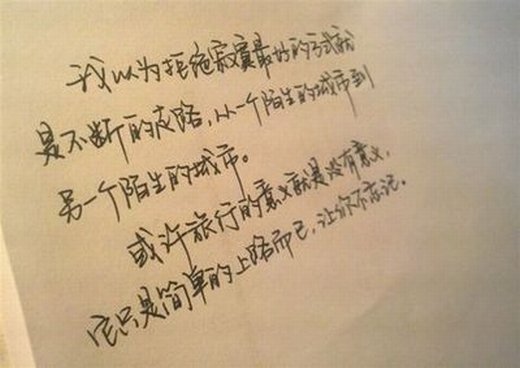 我以为拒绝寂寞最好的方式就
是不断的走路,从一个陌生的城市到
另一个陌生的城市。
或许旅行的意义就是没有意义,
它只是简单的上路而已,让你不忘记。